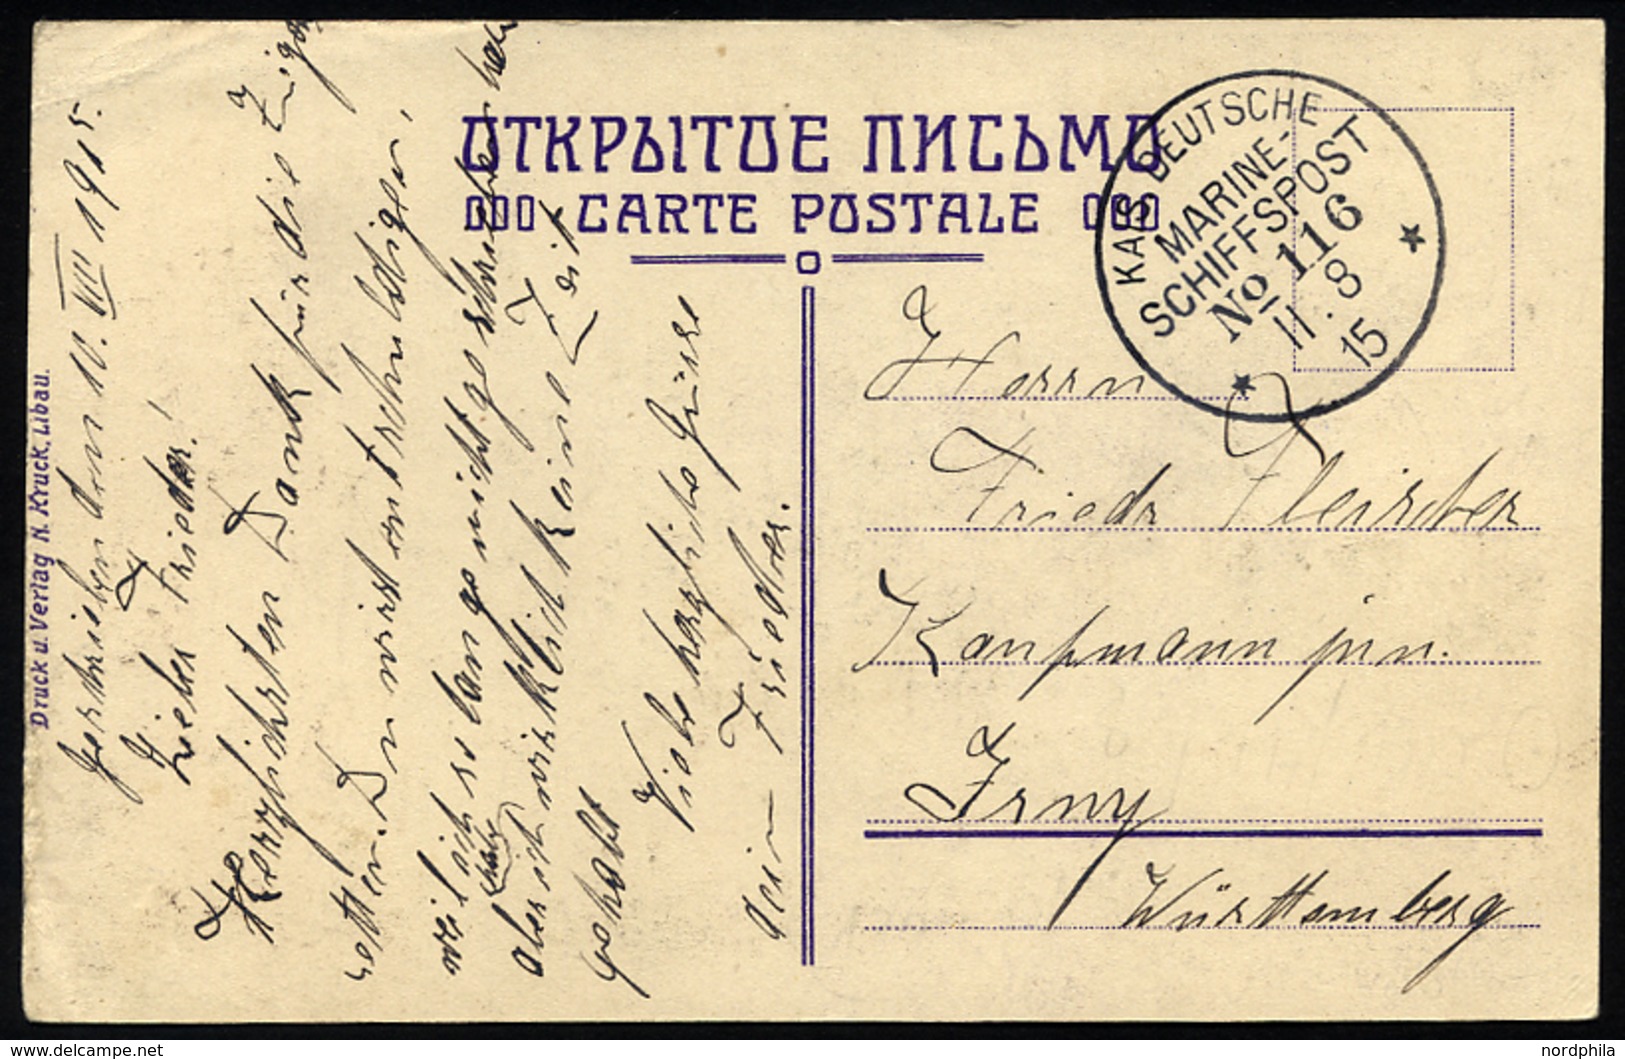 ОТКРЫТОЕ ПИСЬМО
CARTE POSTALE
KAIS. DEUTSCHE
MARINE-
SCHIFFSPOST
No 116
11. 8
15
Druck u. Verlag N. Kruck, Libau.
Geschrieben den 10. VIII 1915.
Lieber Frieder!
Herzlichsten Dank für die Zigar
retten. Du wirst entschuldigen,
weil ich so lange nicht geschrieben habe
aber ich hatte wirklich keine Zeit
gehabt
Viele herzliche Grüsse
dein Frieder.
Herrn
Friedr Fleischer
Kaufmann jun.
Isny
Württemberg
delcampe.net
nordphila